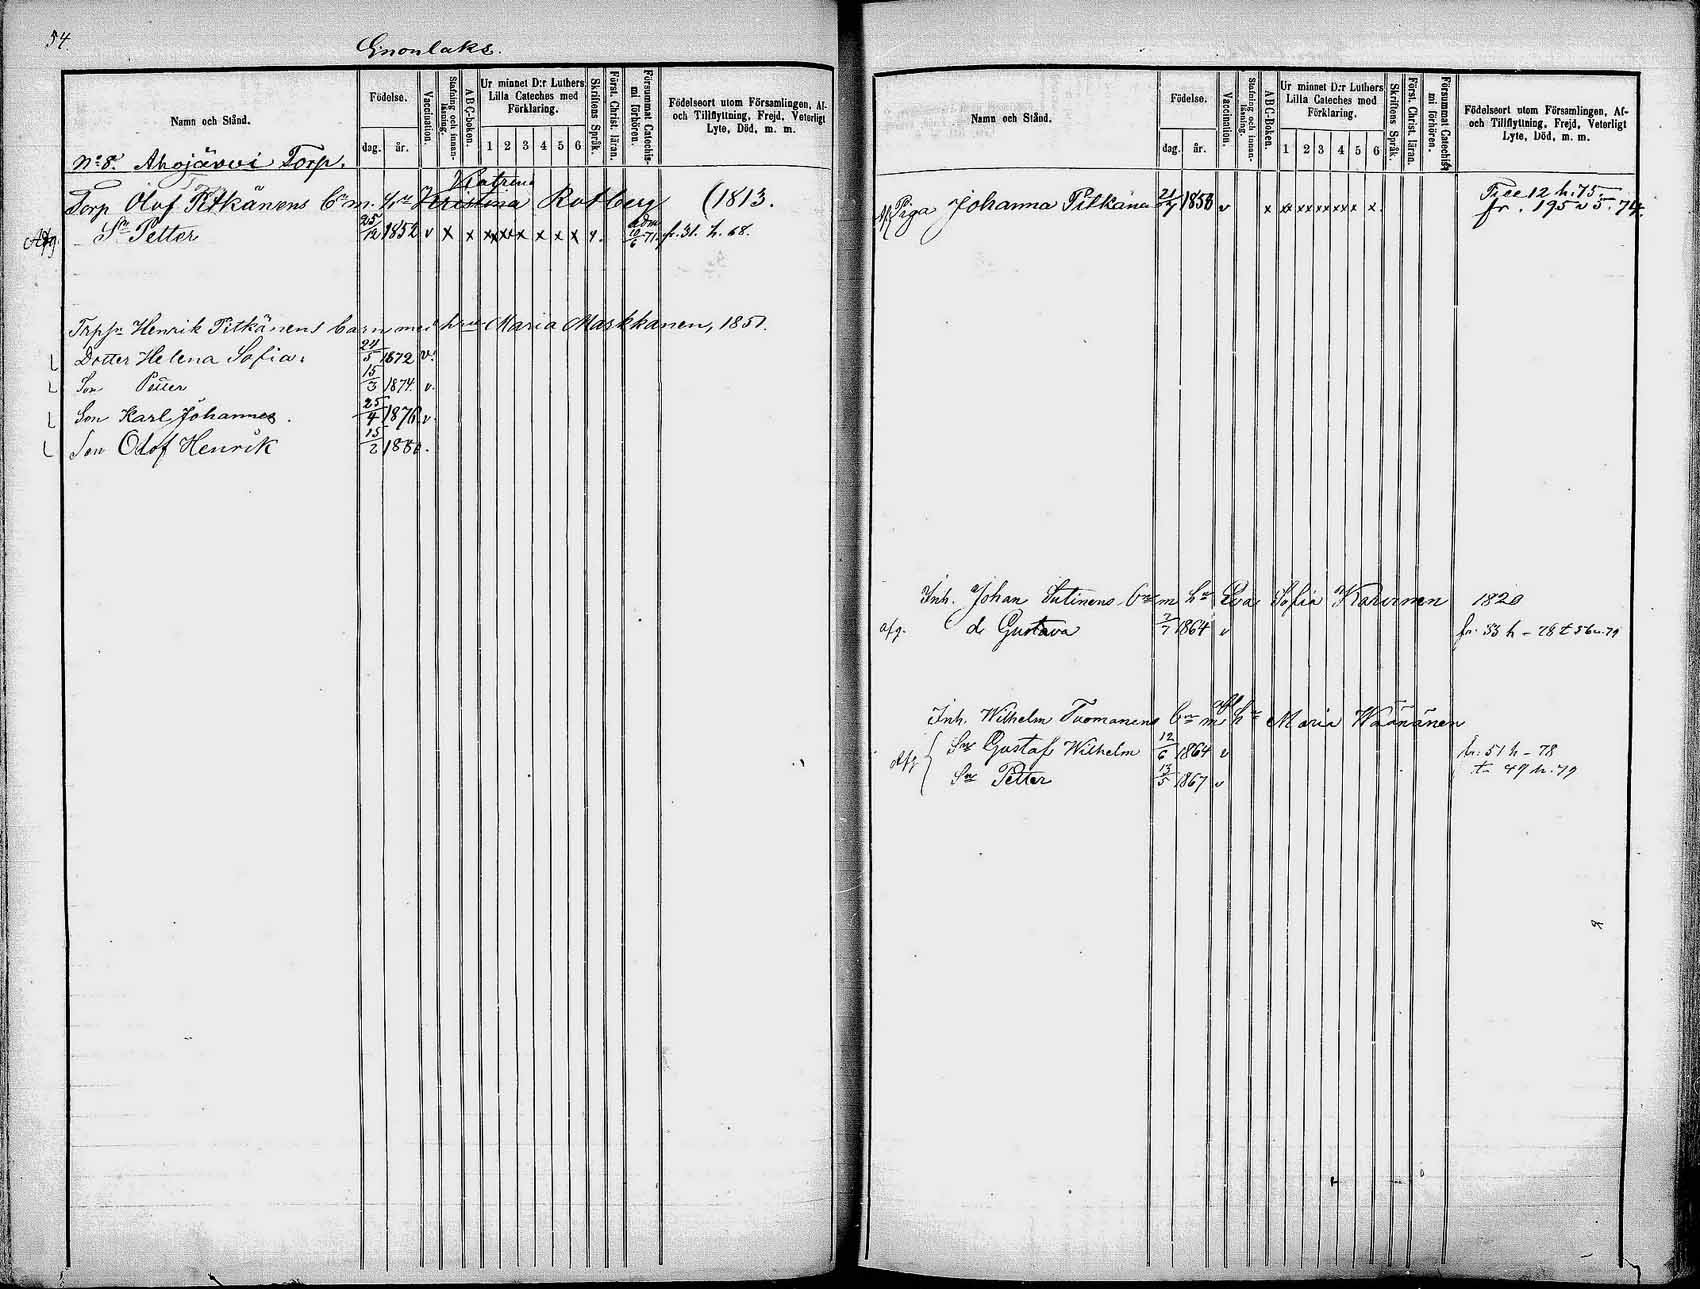 54.
Enonlaks.
Namn och Stånd.
Födelse.
dag.
år.
Vaccination.
Stafning och innan-läsning.
ABC-boken.
Ur minnet D:r Luthers
Lilla Cateches med
Förklaring.
1 2 3 4 5 6
Skriftens Språk.
Först. Christ. läran.
Försummat Catechis-
mi förhören.
Födelseort utom Församlingen, Af-
och Tillflyttning, Frejd, Veterligt
Lyte, Död, m. m.
No 8. Ahojärvi Torp.
Katrina
Torp Olof Pitkänens bn m. h:u Kristina Rotberg (1813.
Afg. Sn Petter 25/12 1852 v x x x x x x x x x fr. 31. h. 68.
Trpsn Henrik Pitkänens barn med hru Maria Markkanen, 1851.
Dotter Helena Sofia. 24/5 1872 v.
Son Petter 15/3 1874. v.
Son Karl Johannes. 25/4 1876 v.
Son Olof Henrik 15/2 1880.
Namn och Stånd.
Födelse.
dag.
år.
Vaccination.
Stafning och innan-läsning.
ABC-Boken.
Ur minnet D:r Luthers
Lilla Cateches med
Förklaring.
1 2 3 4 5 6
Skriftens Språk.
Först. Christ. läran.
Försummat Catechis-
mi förhören.
Födelseort utom Församlingen, Af-
och Tillflyttning, Frejd, Veterligt
Lyte, Död, m. m.
Till 12 h. 75
Piga Johanna Pitkänen 21/7 1858 v x xx xx xx xx x x. fr. 195 v 5. 74.
Inh. Johan Sutinens bn m hu Eva Sofia Karvinen 1820
afg. d. Gustava 2/7 1864 v fr. 53 h - 78 t 56 h. 79
afl
Inh. Wilhelm Tuomanens bn m. hu Maria Wäänänen
Afg { Sn Gustaf Wilhelm 12/6 1864 v fr. 51 h - 78
Sn Petter 13/5 1867 v t- 49 h. 79